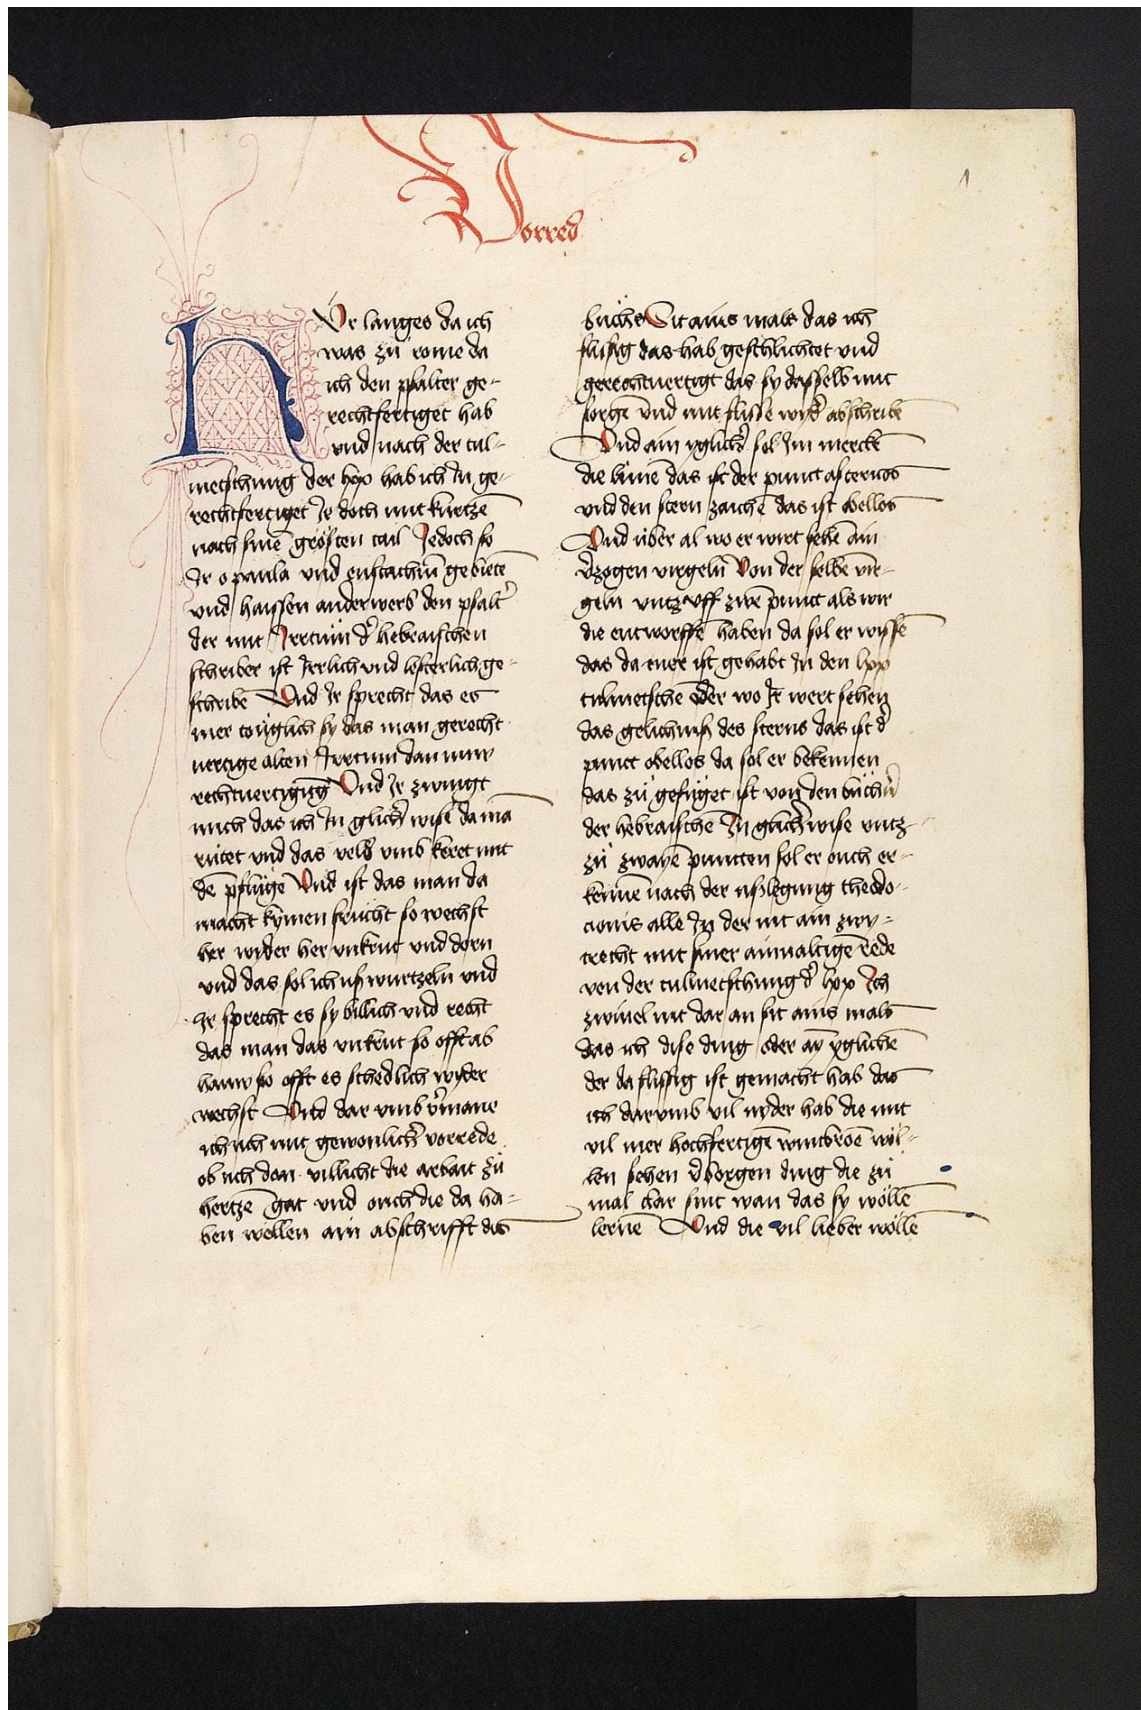 Vorred
1
NVr langes da ich
was zů rome da
ich den psalter ge-
rechtfertiget hab
vnd nach der tul-
metschung der lxx hab ich Jn ge-
rechtfertiget Je doch mit kurtzē
nach sinē grösten tail Jedoch so
Jr o paula vnd eustachiū gebietē
vnd haissen anderwerb den psalt̾
der mit Jrrtum d̾ hebraischen
schriber ist Jrrlich vnd lesterlich ge-
schribē Vnd Jr sprecht das es
mer touglich sy das man gerecht
uertige alten Jrrtum dan nuw
rechtuertigūg Vnd Jr zwingt
mich das ich Jn glich̾ wise da mā
rutet vnd das veld vmb keret mit
dē pflůge Vnd ist das man da
macht kymen frucht so wechst
her wyder her vnkrut vnd dorn
vnd das sol ich uß wurtzeln vnd
Jr sprecht es sy billich vnd recht
das man das vnkrut so offt ab
hauw so offt es schedlich wyder
wechst Vnd dar vmb v̾mane
ich uch mit gewonlich̾ vorrede
ob uch den villicht die arbait zů
hertzē gat vnd ouch die da ha-
ben wellen ain abschrifft dis
bůchs Sit ains mals das ich
flisig das hab geschlichtet vnd
gerechtuertigt das sy dasselb mit
sorgē vnd mit flisse wyd̾ abschribē
Vnd ain yglich̾ sol Jm merckē
die linie das ist der punct astericos
vnd den stern zaichē das ist obellos
Vnd über al wo er wirt sehē ain
v̾zogen virgeln Von der selbē vir-
geln vntz vff zwē punct als wir
die entworffē haben da sol er wissē
das da mer ist gehabt Jn den lxx
tulmetschē Oder wo Jr wert sehen
das gelichniß des sterns das ist d̾
punct obellos da sol er bekennen
das zů gefüget ist von den bůch̾n
der hebraischē Jn glich̾ wise vntz
zů zwayē puncten sol er ouch er-
kennē nach der ußlegung theodo-
cionis alle Jn der nit ain zwy-
trecht mit siner ainualtigē rede
von der tulmetschung d̾ lxx Jch
zwiuel nit dar an sit ains mals
das ich dise ding oder ay yglichē
der da flissig ist gemacht hab das
ich darvmb vil nyder hab die mit
vil mer hochfertigē wintbroē wöl-
len sehen v̾borgen ding die zů
mal clar sint wan das sy wöllē
lernē Vnd die vil lieber wöllē